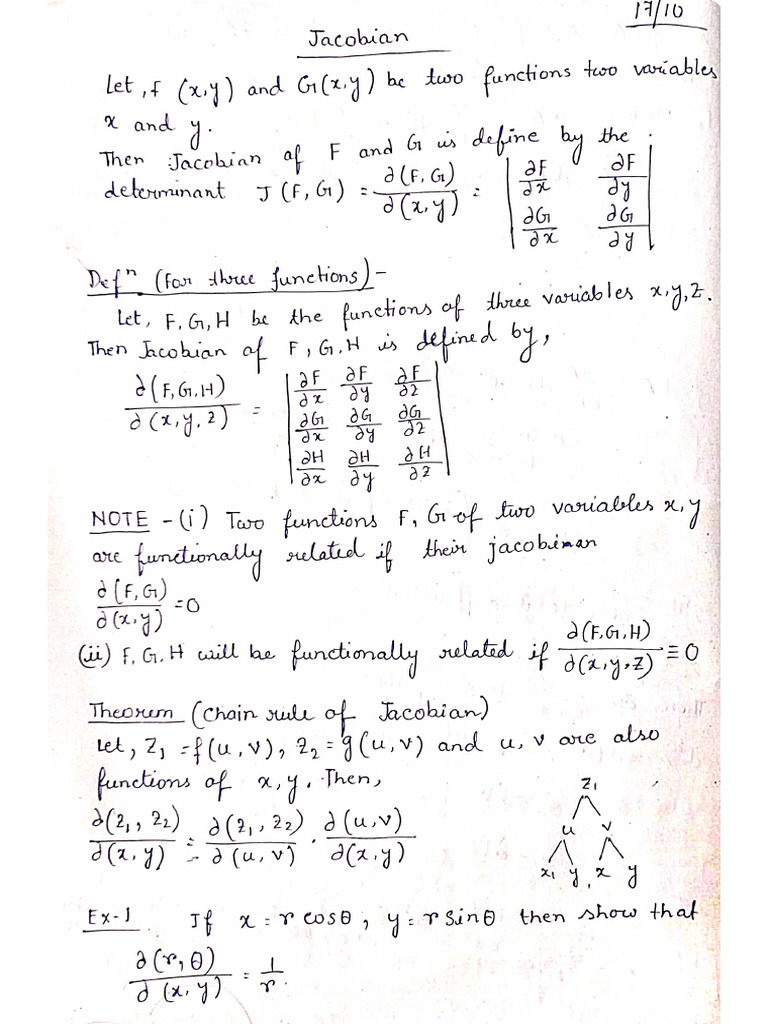 17/10
Jacobian
Let, f (x,y) and G(x,y) be two functions two variables
x and y.
Then Jacobian of F and G is define by the
determinant J (F, G) = ∂(F, G)/∂(x,y) = | ∂F/∂x ∂F/∂y |
| ∂G/∂x ∂G/∂y |
Defⁿ (for three functions) -
Let, F, G, H be the functions of three variables x,y,z.
Then Jacobian of F, G, H is defined by,
∂(F,G,H)/∂(x,y,z) = | ∂F/∂x ∂F/∂y ∂F/∂z |
| ∂G/∂x ∂G/∂y ∂G/∂z |
| ∂H/∂x ∂H/∂y ∂H/∂z |
NOTE - (i) Two functions F, G of two variables x, y
are functionally related if their jacobiman
∂(F,G)/∂(x,y) = 0
(ii) F, G, H will be functionally related if ∂(F,G,H)/∂(x,y,z) ≡ 0
Theorem (Chain rule of Jacobian)
Let, Z₁ = f(u,v), Z₂ = g(u,v) and u, v are also
functions of x,y. Then,
∂(Z₁, Z₂)/∂(x,y) = ∂(Z₁, Z₂)/∂(u,v) · ∂(u,v)/∂(x,y)
Z₁
u v
x₁ y, x y
Ex-1 If x = r cosθ, y = r sinθ then show that
∂(r,θ)/∂(x,y) = 1/r.